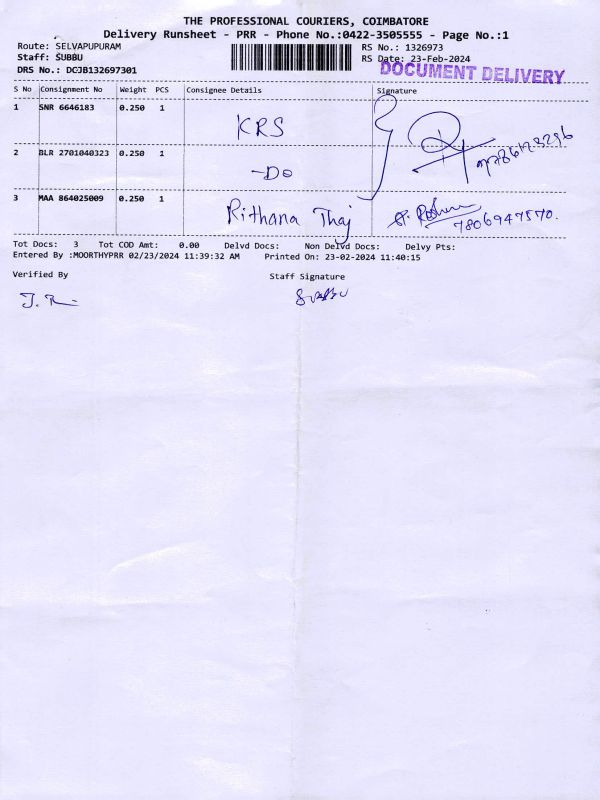 THE PROFESSIONAL COURIERS, COIMBATORE
Delivery Runsheet - PRR - Phone No.:0422-3505555 - Page No.:1
Route: SELVAPUPURAM
RS No.: 1326973
Staff: SUBBU
RS Date: 23-Feb-2024
DRS No.: DCJB132697301
DOCUMENT DELIVERY
S No Consignment No Weight PCS Consignee Details Signature
1 SNR 6646183 0.250 1 KRS
2 BLR 2701040323 0.250 1 -Do
3 MAA 864025009 0.250 1 Rithana Thaj
7806947570.
Tot Docs: 3 Tot COD Amt: 0.00 Delvd Docs: Non Delvd Docs: Delvy Pts:
Entered By :MOORTHYPRR 02/23/2024 11:39:32 AM Printed On: 23-02-2024 11:40:15
Verified By Staff Signature